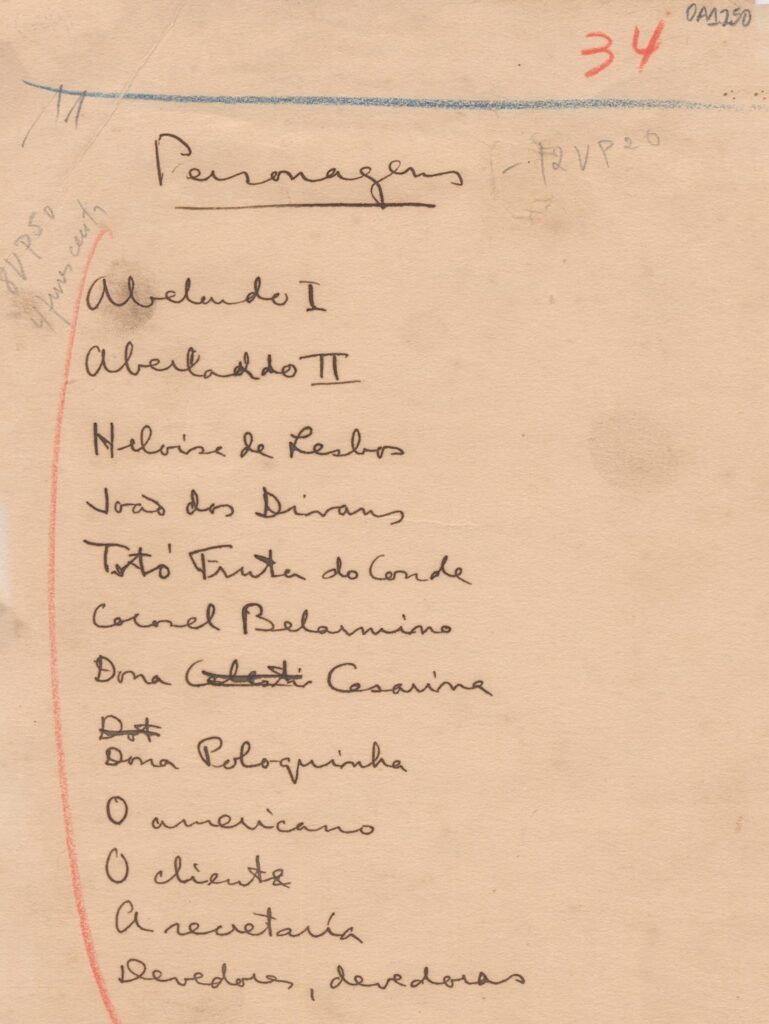 OA1250
34
11
Personagens - 12VP20
8VP50
Abelardo I
Abelardo II
Heloisa de Lesbos
João dos Divans
Totó Fruta do Conde
Coronel Belarmino
Dona Celesti Cesarina
Dot
Dona Poloquinha
O americano
O cliente
A secretaría
Devedores, devedoras